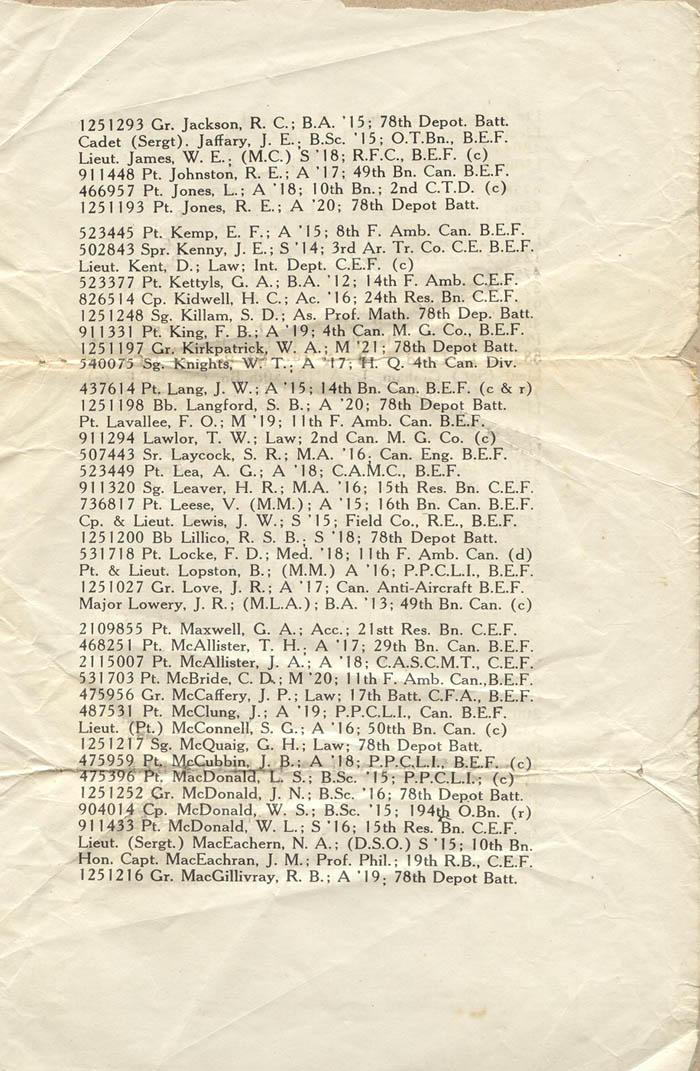 1251293 Gr. Jackson, R. C.; B.A. '15; 78th Depot. Batt.
Cadet (Sergt). Jaffary, J. E.; B.Sc. '15; O.T.Bn., B.E.F.
Lieut. James, W. E.; (M.C.) S '18; R.F.C., B.E.F. (c)
911448 Pt. Johnston, R. E.; A '17; 49th Bn. Can. B.E.F.
466957 Pt. Jones, L.; A '18; 10th Bn.; 2nd C.T.D. (c)
1251193 Pt. Jones, R. E.; A '20; 78th Depot Batt.
523445 Pt. Kemp, E. F.; A '15; 8th F. Amb. Can. B.E.F.
502843 Spr. Kenny, J. E.; S '14; 3rd Ar. Tr. Co. C.E. B.E.F.
Lieut. Kent, D.; Law; Int. Dept. C.E.F. (c)
523377 Pt. Kettyls, G. A.; B.A. '12; 14th F. Amb. C.E.F.
826514 Cp. Kidwell, H. C.; Ac. '16; 24th Res. Bn. C.E.F.
1251248 Sg. Killam, S. D.; As. Prof. Math. 78th Dep. Batt.
911331 Pt. King, F. B.; A '19; 4th Can. M. G. Co., B.E.F.
1251197 Gr. Kirkpatrick, W. A.; M '21; 78th Depot Batt.
540075 Sg. Knights, W. T.; A '17; H. Q. 4th Can. Div.
437614 Pt. Lang, J. W.; A '15; 14th Bn. Can. B.E.F. (c & r)
1251198 Bb. Langford, S. B.; A '20; 78th Depot Batt.
Pt. Lavallee, F. O.; M '19; 11th F. Amb. Can. B.E.F.
911294 Lawlor, T. W.; Law; 2nd Can. M. G. Co. (c)
507443 Sr. Laycock, S. R.; M.A. '16; Can. Eng. B.E.F.
523449 Pt. Lea, A. G.; A '18; C.A.M.C., B.E.F.
911320 Sg. Leaver, H. R.; M.A. '16; 15th Res. Bn. C.E.F.
736817 Pt. Leese, V. (M.M.); A '15; 16th Bn. Can. B.E.F.
Cp. & Lieut. Lewis, J. W.; S '15; Field Co., R.E., B.E.F.
1251200 Bb Lillico, R. S. B.; S '18; 78th Depot Batt.
531718 Pt. Locke, F. D.; Med. '18; 11th F. Amb. Can. (d)
Pt. & Lieut. Lopston, B.; (M.M.) A '16; P.P.C.L.I., B.E.F.
1251027 Gr. Love, J. R.; A '17; Can. Anti-Aircraft B.E.F.
Major Lowery, J. R.; (M.L.A.); B.A. '13; 49th Bn. Can. (c)
2109855 Pt. Maxwell, G. A.; Acc.; 21stt Res. Bn. C.E.F.
468251 Pt. McAllister, T. H.; A '17; 29th Bn. Can. B.E.F.
2115007 Pt. McAllister, J. A.; A '18; C.A.S.C.M.T., C.E.F.
531703 Pt. McBride, C. D.; M '20; 11th F. Amb. Can.,B.E.F.
475956 Gr. McCaffery, J. P.; Law; 17th Batt. C.F.A., B.E.F.
487531 Pt. McClung, J.; A '19; P.P.C.L.I., Can. B.E.F.
Lieut. (Pt.) McConnell, S. G.; A '16; 50tth Bn. Can. (c)
1251217 Sg. McQuaig, G. H.; Law; 78th Depot Batt.
475959 Pt. McCubbin, J. B.; A '18; P.P.C.L.I., B.E.F. (c)
475396 Pt. MacDonald, L. S.; B.Sc. '15; P.P.C.L.I.; (c)
1251252 Gr. McDonald, J. N.; B.Sc. '16; 78th Depot Batt.
904014 Cp. McDonald, W. S.; B.Sc. '15; 194th O.Bn. (r)
911433 Pt. McDonald, W. L.; S '16; 15th Res. Bn. C.E.F.
Lieut. (Sergt.) MacEachern, N. A.; (D.S.O.) S '15; 10th Bn.
Hon. Capt. MacEachran, J. M.; Prof. Phil.; 19th R.B., C.E.F.
1251216 Gr. MacGillivray, R. B.; A '19; 78th Depot Batt.